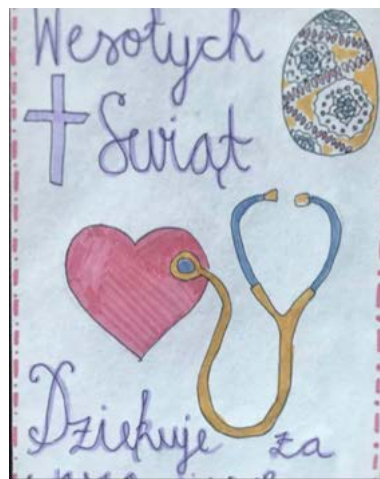 Wesołych
Świąt
Dziękuje za